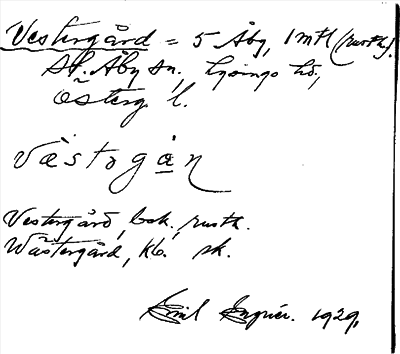 Vestergård = 5 Åby, 1 mtl (rusth.).
St. Åby sn, Lysings hd,
Österg. l.
Västərgån
Vestergård, bok., rusth.
Wästergård, kb. sk.
Emil 1929.